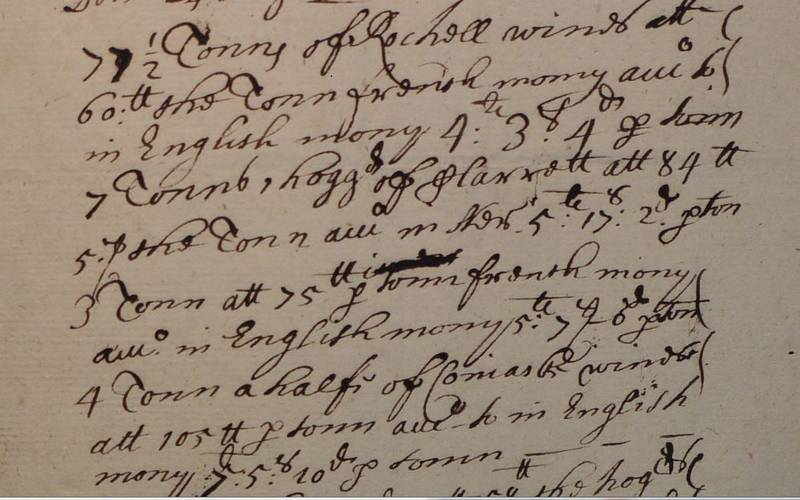 77 1/2 Tonns of Rochell wines att
60:tt the Tonn french mony au:o to
in English mony 4:te 3:s 4d p tonn
7 Tonns, 1 hoggd of Clarrett att 84 tt
5:s p the Tonn au:o in Ster 5:te 17:s 2d p ton
3 Tonn att 75 tt p tonn french mony
au:o in English mony 5:te 7s 6d p ton
4 Tonn a halfe of wines
att 105 tt p tonn au:o to in English
mony 7: 5:s 10d p tonn
tt the hogd